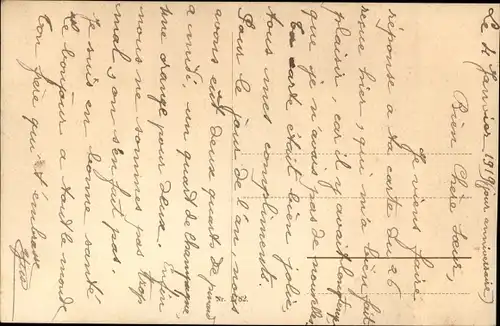 Le 4 Janvier 1918 (jour anniversaire)
Bien Chère Sœur,
Je viens faire
réponse à ta carte du 26
reçue hier, qui m'a bien fait
plaisir, car il y avait longtemps
que je n'avais pas de nouvelles.
Ta carte était bien jolie,
tous mes compliments.
Pour le jour de l'an, nous
avons eut deux quarts de pinard
à midi un quart de Champagne
une orange pour deux. Enfin
nous ne sommes pas trop
mal, on s'en fut pas.
Je suis en bonne santé
Le bonjour à tout le monde,
Ton frère qui t'embrasse